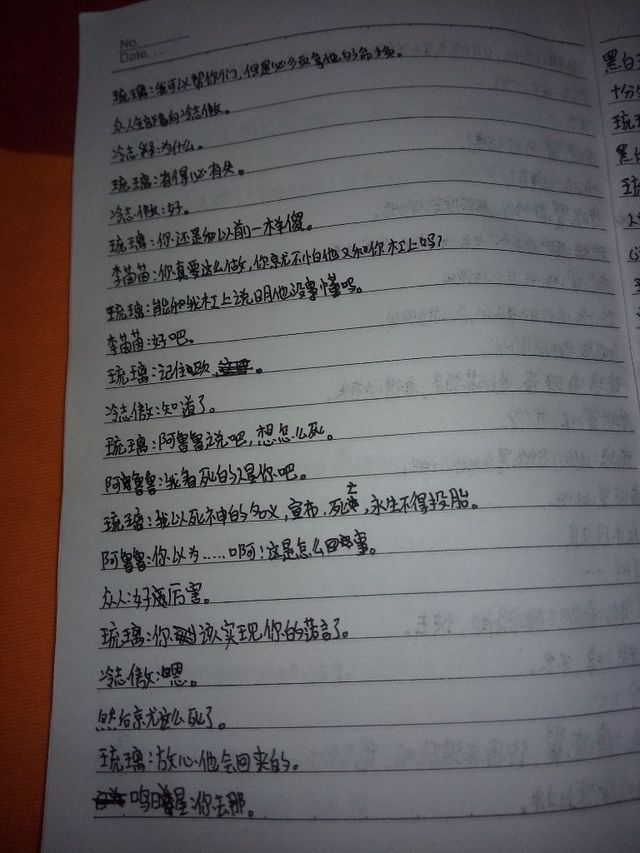 No.
Date...
琉璃:我可以帮你们,但是必须拿他的命换。
众人全都看向冷志傲。
冷志傲:为什么。
琉璃:有得必有失。
冷志傲:好。
琉璃:你还是和以前一样傻。
李苗苗:你真要这么做,你就不怕他又和你杠上吗?
琉璃:能和我杠上说明他没事懂吗。
李苗苗:好吧。
琉璃:记住
冷志傲:知道了。
琉璃:阿鲁鲁说吧,想怎么死。
阿鲁鲁:我看死的人是你吧。
琉璃:我以死神的名义,宣布,死亡,永生不得投胎。
阿鲁鲁:你以为……啊!这是怎么回事。
众人:好厉害。
琉璃:你该实现你的诺言了。
冷志傲:嗯。
然后就这么死了。
琉璃:放心他会回来的。
鸣:你去那。
黑白
十分
琉璃
黑白
琉